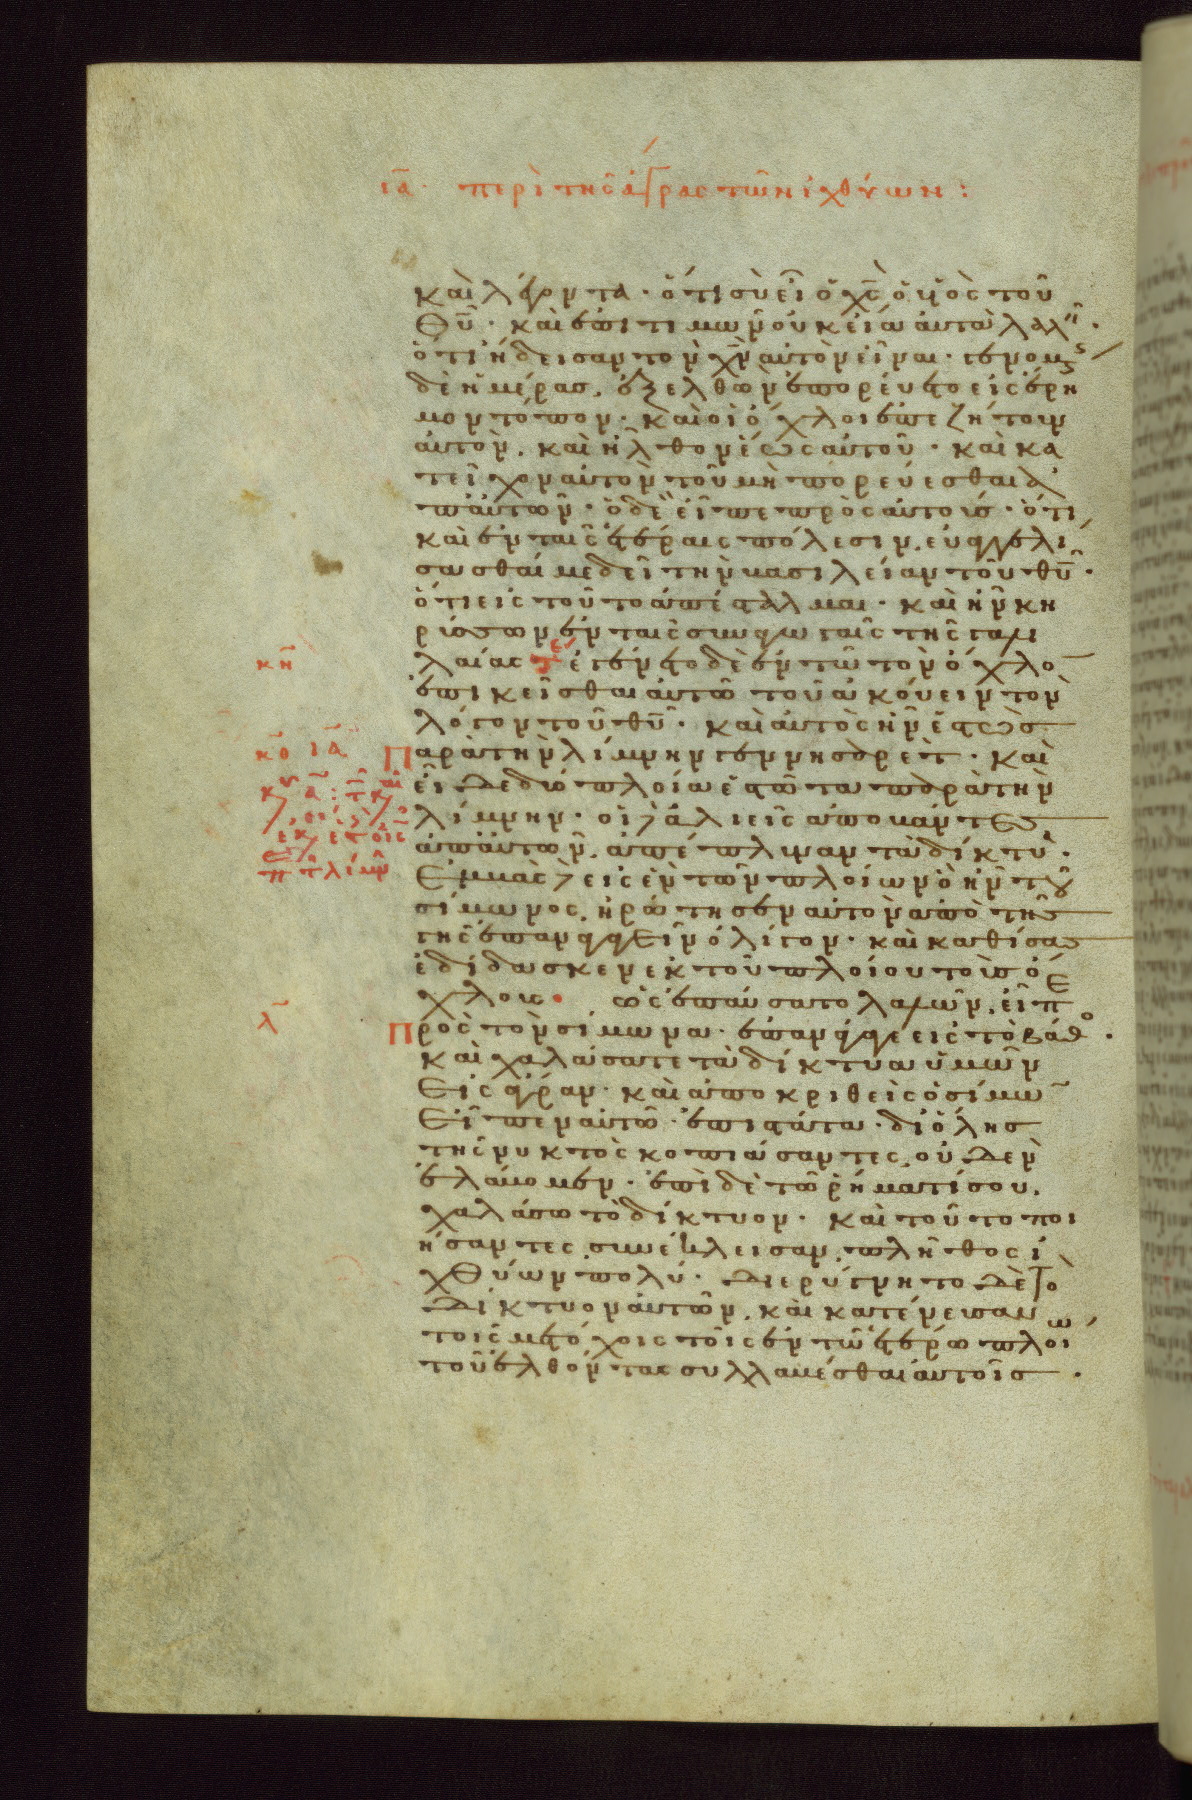 ια περὶ τῆς ἄγρας τῶν ἰχθύων :
καὶ λέγοντα · ὅτι σὺ εἶ ὁ χς ὁ υἱὸς τοῦ
Θυ · καὶ ἐπιτιμῶν οὐκ εἴα αὐτὰ λαλεῖ ·
ὅτι ᾔδεισαν τὸν χν αὐτὸν εἶναι · γενομς
δὲ ἡμέρας, ἐξελθὼν ἐπορεύετο εἰς ἔρη
μον τόπον · καὶ οἱ ὄχλοι ἐπεζήτουν
αὐτὸν, καὶ ἦλθον ἕως αὐτοῦ · καὶ κα
τεῖχον αὐτὸν τοῦ μὴ πορεύεσθαι ἀ
π' αὐτῶν · ὁ δὲ εἶπε πρὸς αὐτοὺς · ὅτι
καὶ ἐν ταῖς ἑτέραις πόλεσιν, εὐαγγελί
σασθαί με δεῖ τὴν βασιλείαν τοῦ θυ ·
ὅτι εἰς τοῦτο ἀπέσταλμαι · καὶ ἦν κη
ρύσσων ἐν ταῖς συναγωγαῖς τῆς γαλι
κη λαίας τε ἐγένετο δὲ ἐν τῶ τὸν ὄχλο
ἐπικεῖσθαι αὐτῶ τοῦ ἀκούειν τὸν
λόγον τοῦ θυ · καὶ αὐτὸς ἦν ἑστὼς
κθ ια Παρὰ τὴν λίμνην γεννησαρέτ · καὶ
εἶδε δύο πλοῖα ἑστῶτα παρὰ τὴν
λίμνην · οἱ δὲ ἁλιεῖς ἀποβάντες
ἀπ' αὐτῶν, ἀπέπλυναν τὰ δίκτυα ·
Ἐμβὰς δὲ εἰς ἓν τῶν πλοίων ὃ ἦν τοῦ
σίμωνος, ἠρώτησεν αὐτὸν ἀπὸ τῆς
γῆς ἐπαναγαγεῖν ὀλίγον · καὶ καθίσας
ἐδίδασκεν ἐκ τοῦ πλοίου τοὺς ὄ
χλους ὡς ἐπαύσατο λαλῶν, εἶπε
λ Πρὸς τὸν σίμωνα · ἐπανάγαγε εἰς τὸ βάθο ·
καὶ χαλάσατε τὰ δίκτυα ὑμῶν
Εἰς ἄγραν · καὶ ἀποκριθεὶς ὁ σίμω
Εἶπεν αὐτῶ · ἐπιστάτα · δι' ὅλης
τῆς νυκτὸς κοπιάσαντες, οὐδὲν
ἐλάβομεν · ἐπὶ δὲ τῶ ῥήματί σου,
χαλάσω τὸ δίκτυον · καὶ τοῦτο ποι
ήσαντες, συνέκλεισαν, πλῆθος ἰ
χθύων πολύ · διερήγνητο δὲ τὸ
δίκτυον αὐτῶν, καὶ κατένευσαν
τοῖς μετόχοις τοῖς ἐν τῶ ἑτέρω πλοίω
τοῦ ἐλθόντας συλλαβέσθαι αὐτοῖς ·